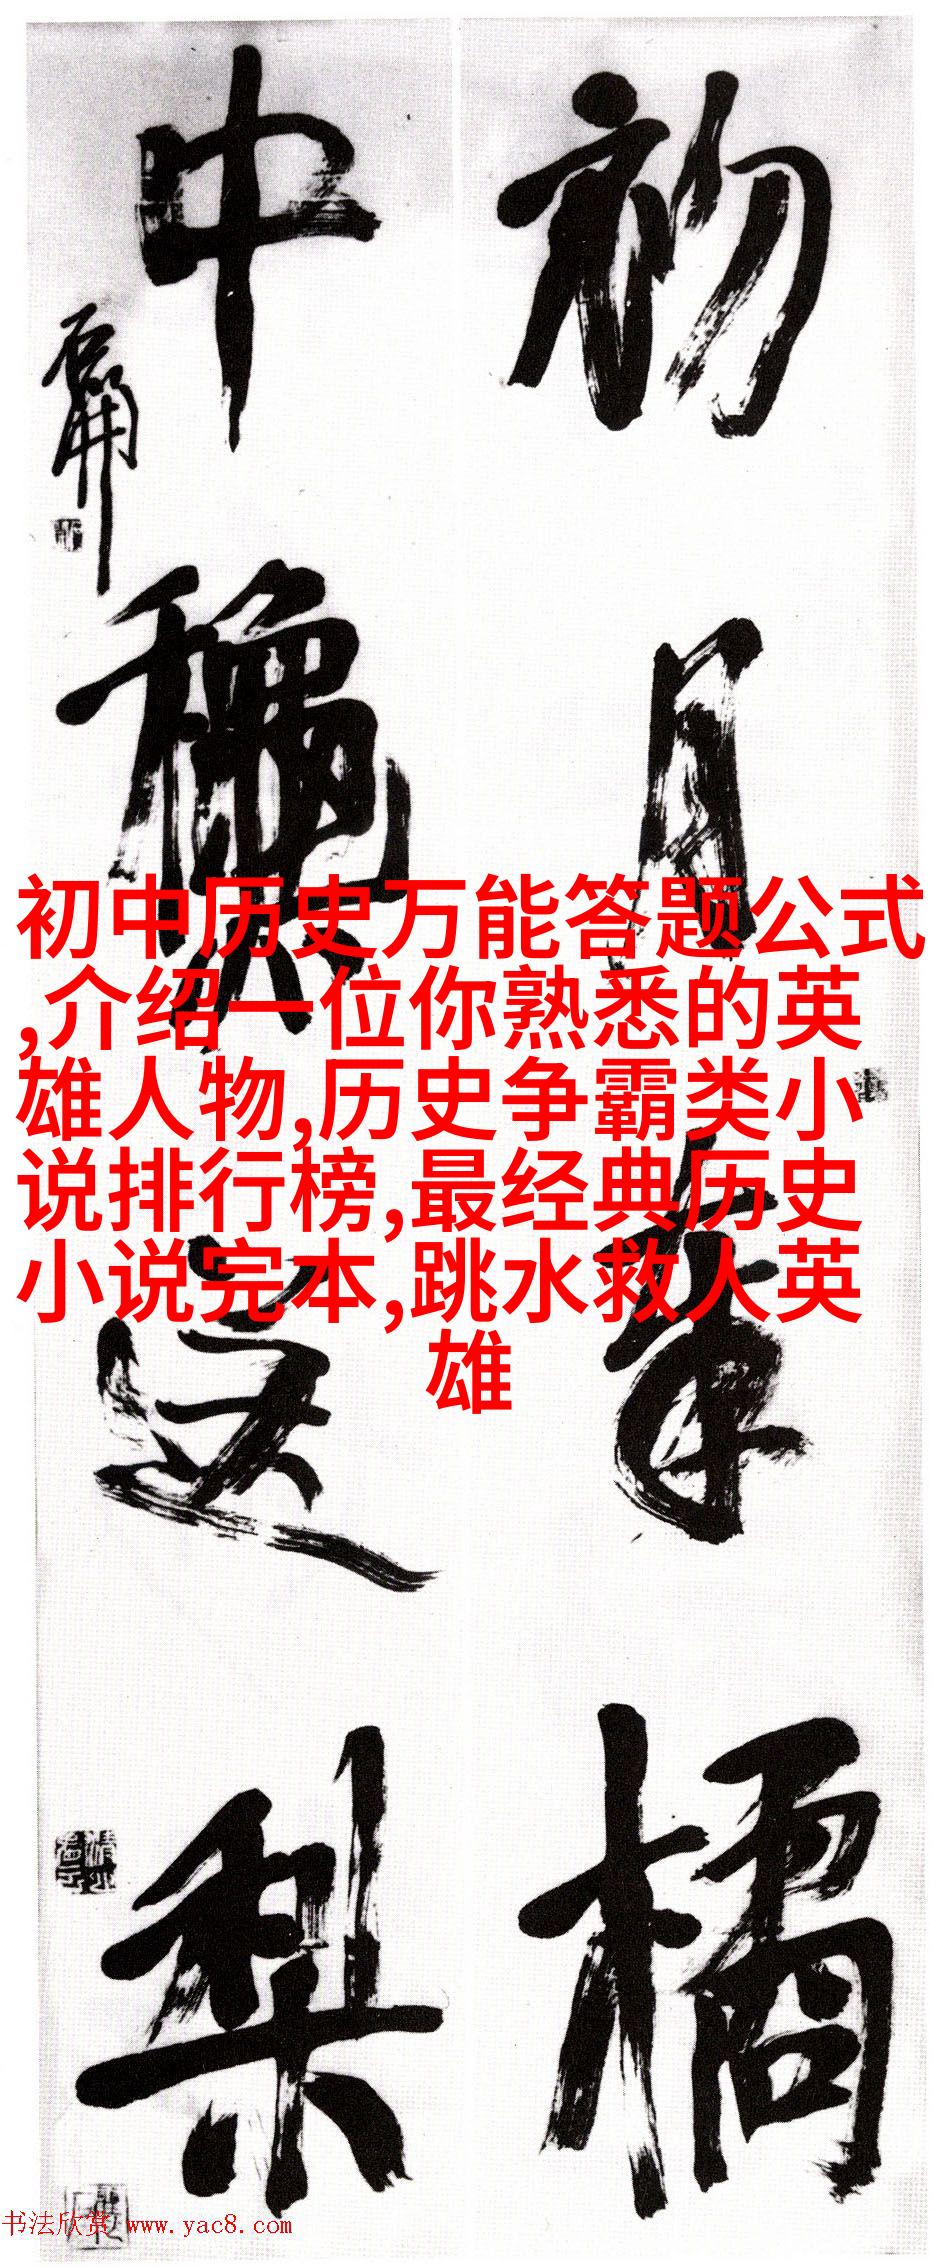 初月橘
中梨
石開
初中历史万能答题公式
,介绍一位你熟悉的英
雄人物,历史争霸类小
说排行榜,最经典历史
小说完本,跳水救人英
雄
书法欣赏 www.yac8.com